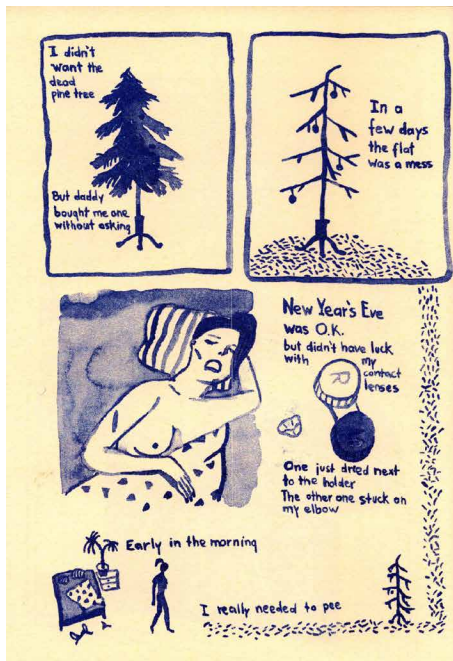 I didn't
want the
dead
pine tree
But daddy
bought me one
without asking
In a
few days
the flat
was a mess
New Year's Eve
was O.K.
but didn't have luck
with my
contact
lenses
R
One just dried next
to the holder
The other one stuck on
my elbow
Early in the morning
I really needed to pee